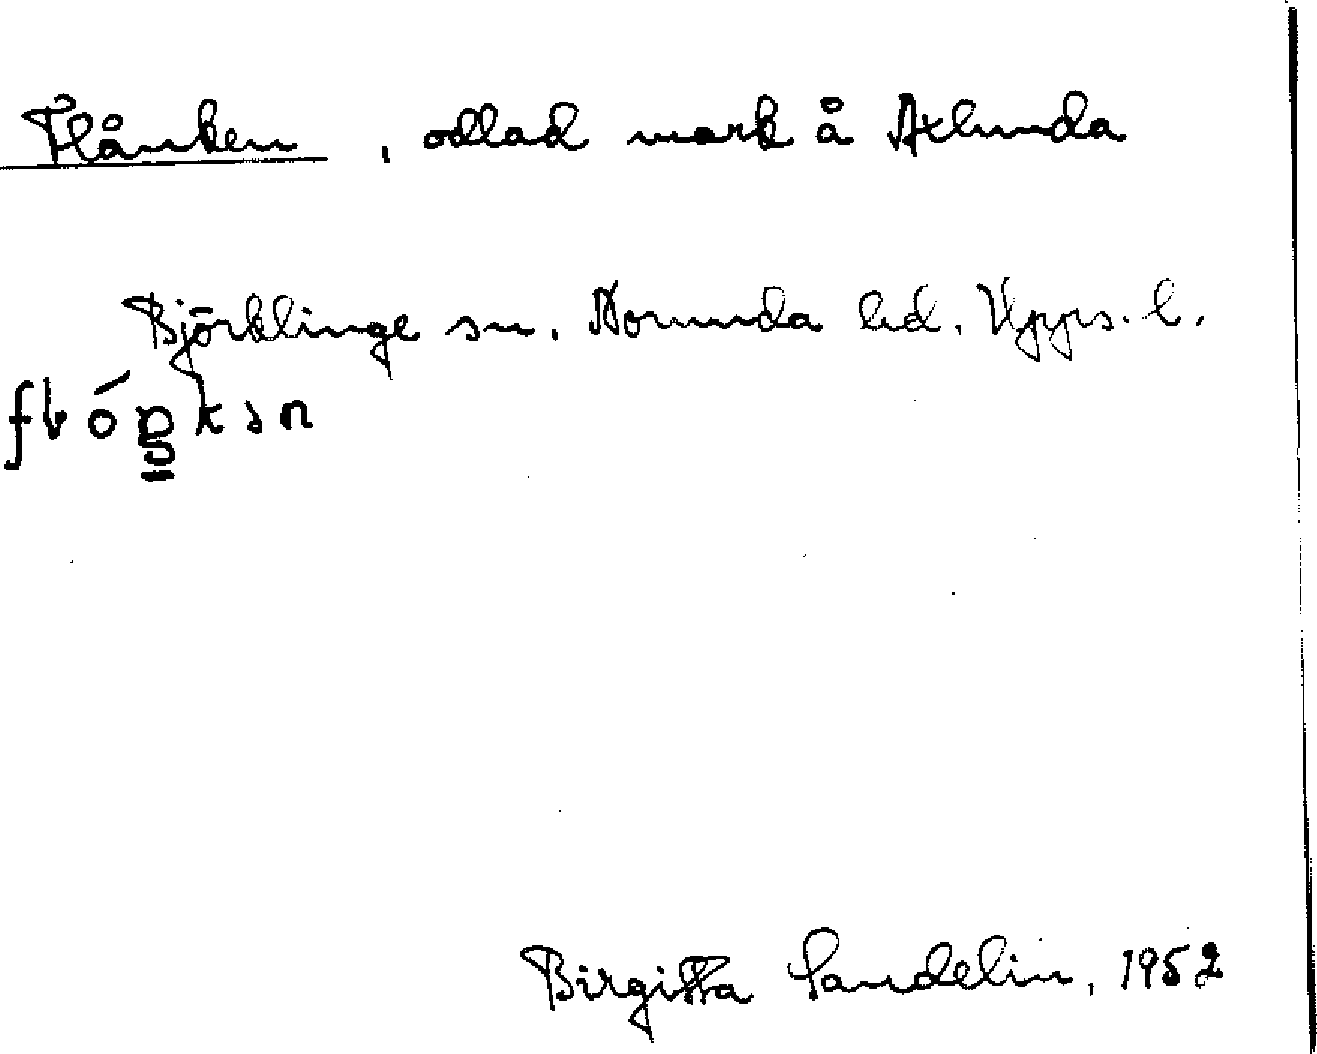 Flånken, odlad mark å Axlunda
Björklinge sn. Norunda hd. Upps. l.
flóŋkən
Birgitta Sandelin, 1952